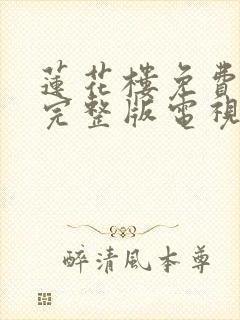 蓮花樓免費
完整版電視
醉清風本尊